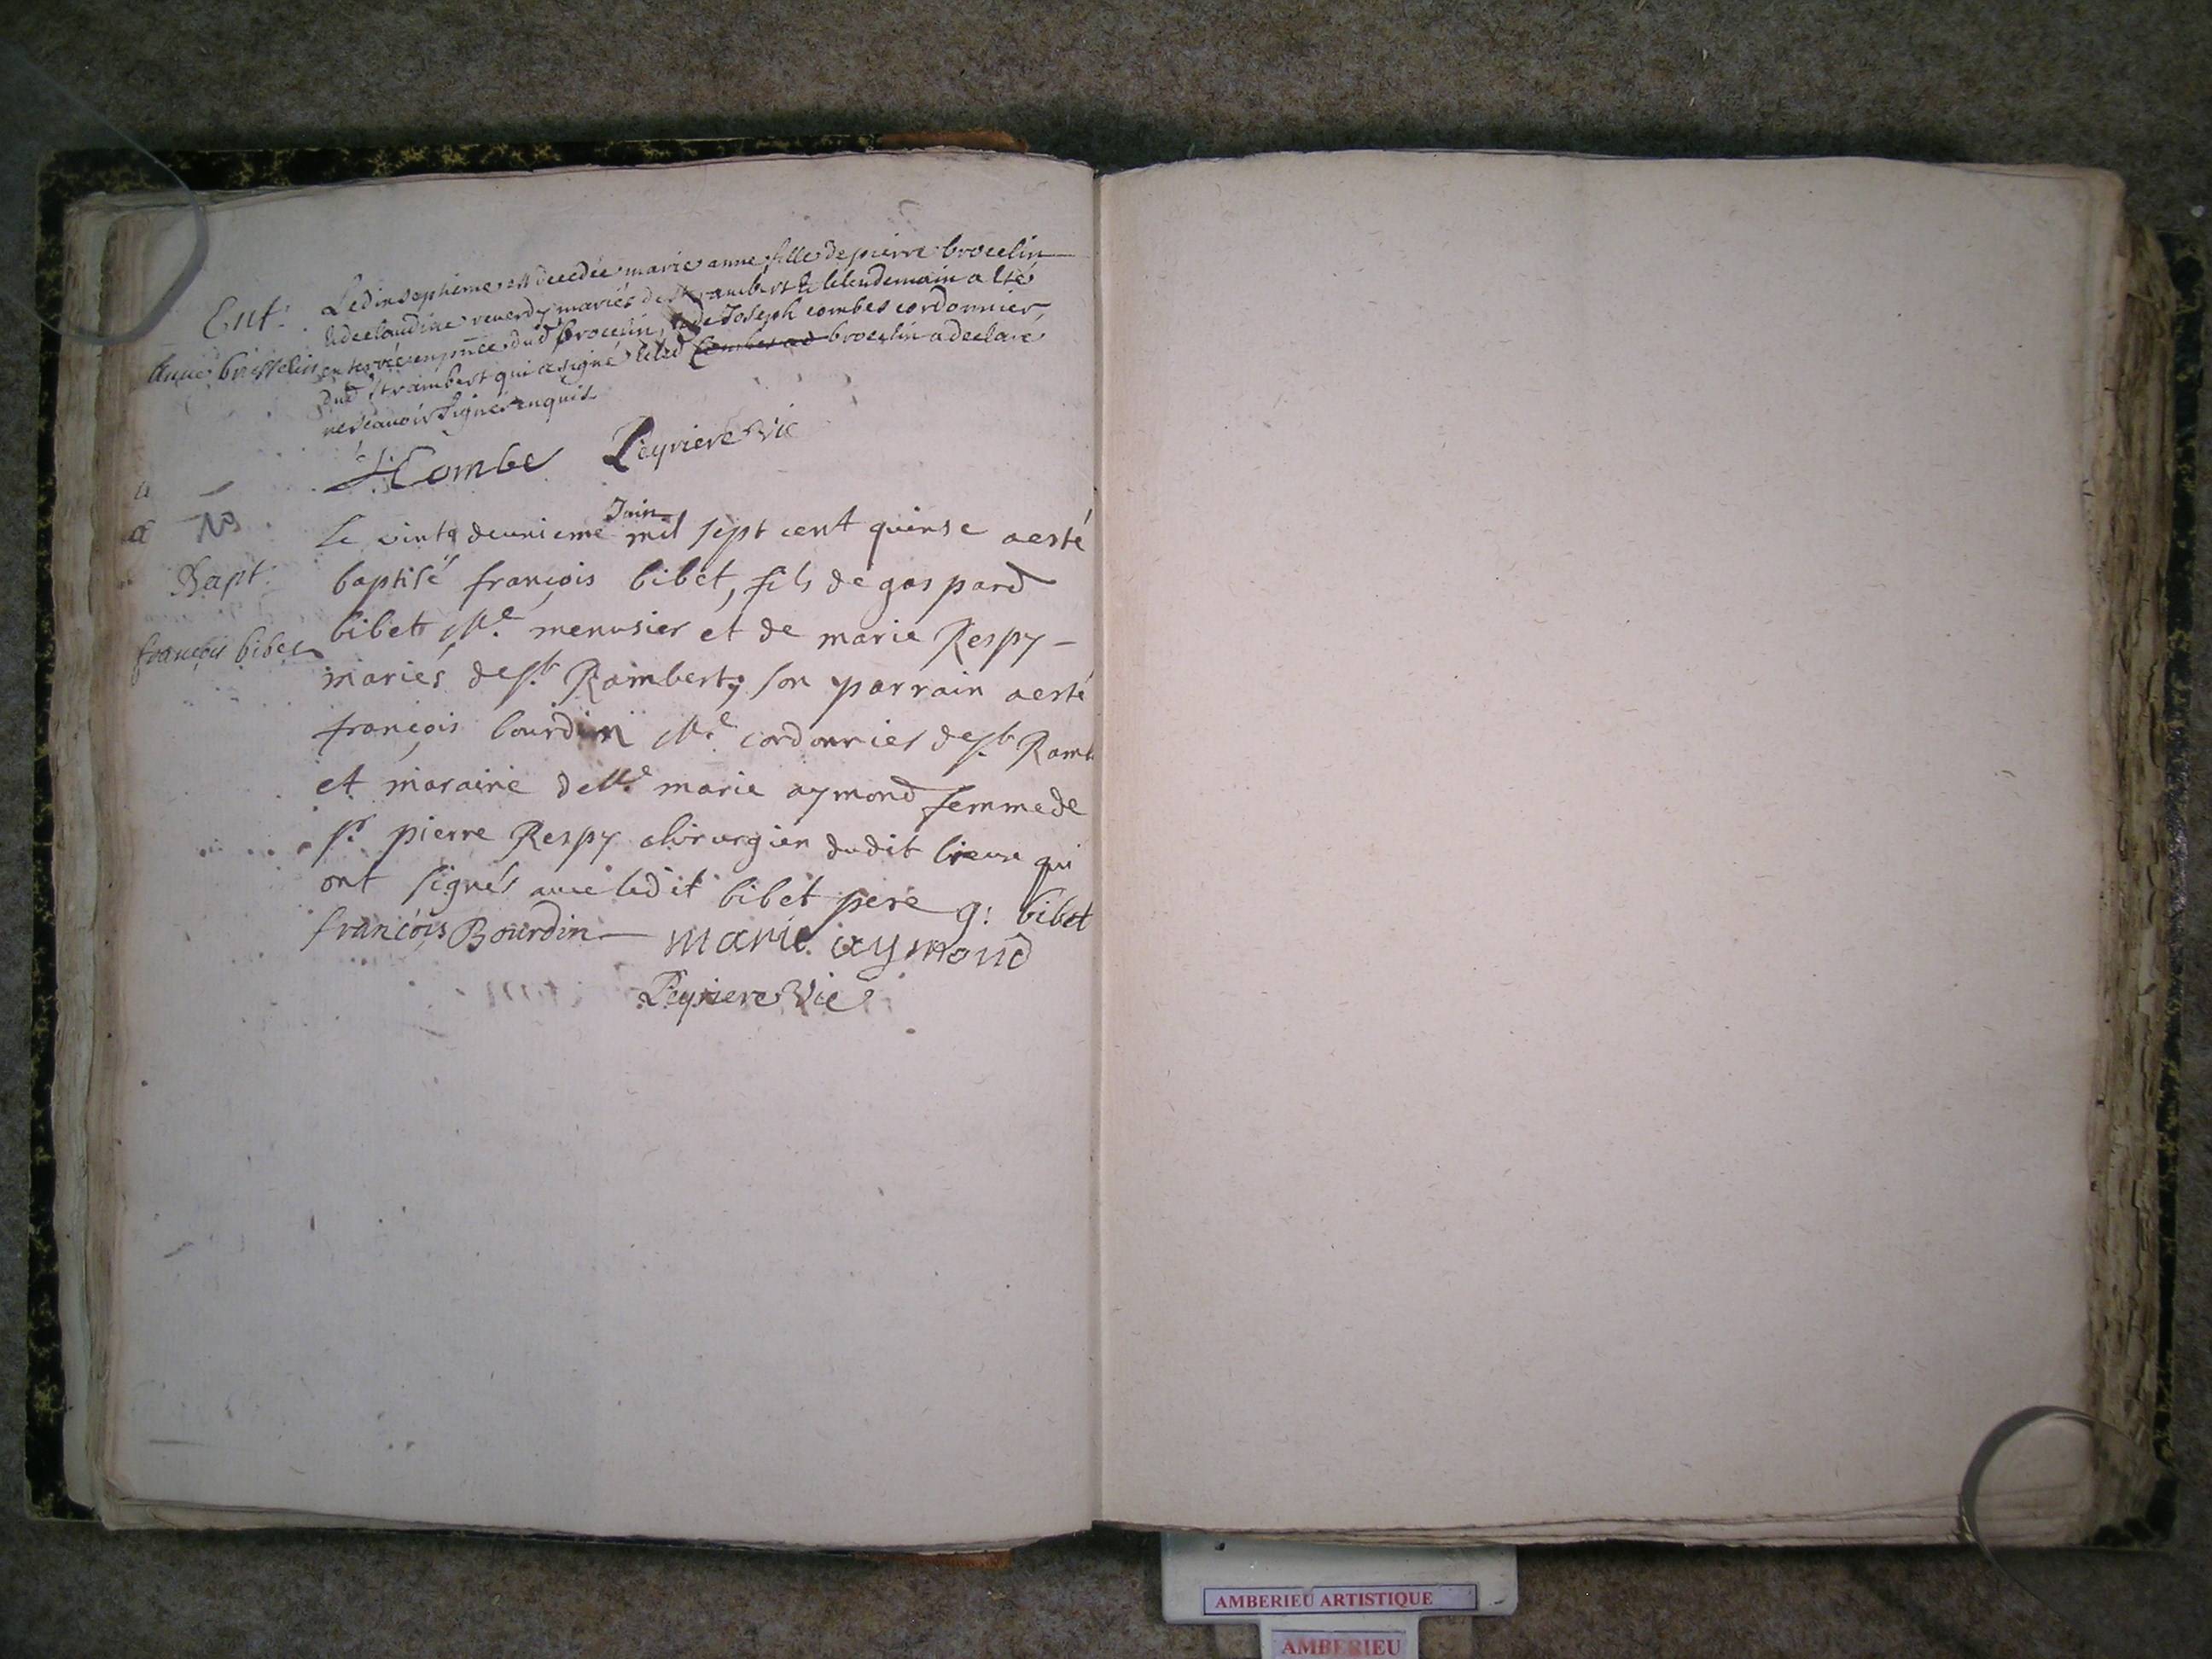 Ent:
anne brosselin
Ledi septieme est decedée marie anne fille de pierre brocelin
& de claudine reverdy mariés de St rambert & le lendemain a été
enterrée en pnce dud brocelin, & de Joseph combes cordonnier,
dud St rambert qui a signé & led combes ad brocelin a declaré
ne scavoir signer enquis
J Combe Peyriere Vic
N3
Bapt:
françois bibet
Le vintq deunieme Juin mil sept cent quinse a esté
baptisé françois bibet, fils de gaspard
bibet Me. menusier et de marie Respy
mariés de St. Rambert; son parrain a esté
françois bourdin Me. cordonnier de St. Ramb
et maraine delle. marie aymond femme de
sr. pierre Respy chirurgien dudit lieux qui
ont signés avec ledit bibet pere g: bibet
françois Bourdin marie aymond
Peyriere Vic
AMBERIEU ARTISTIQUE
AMBERIEU